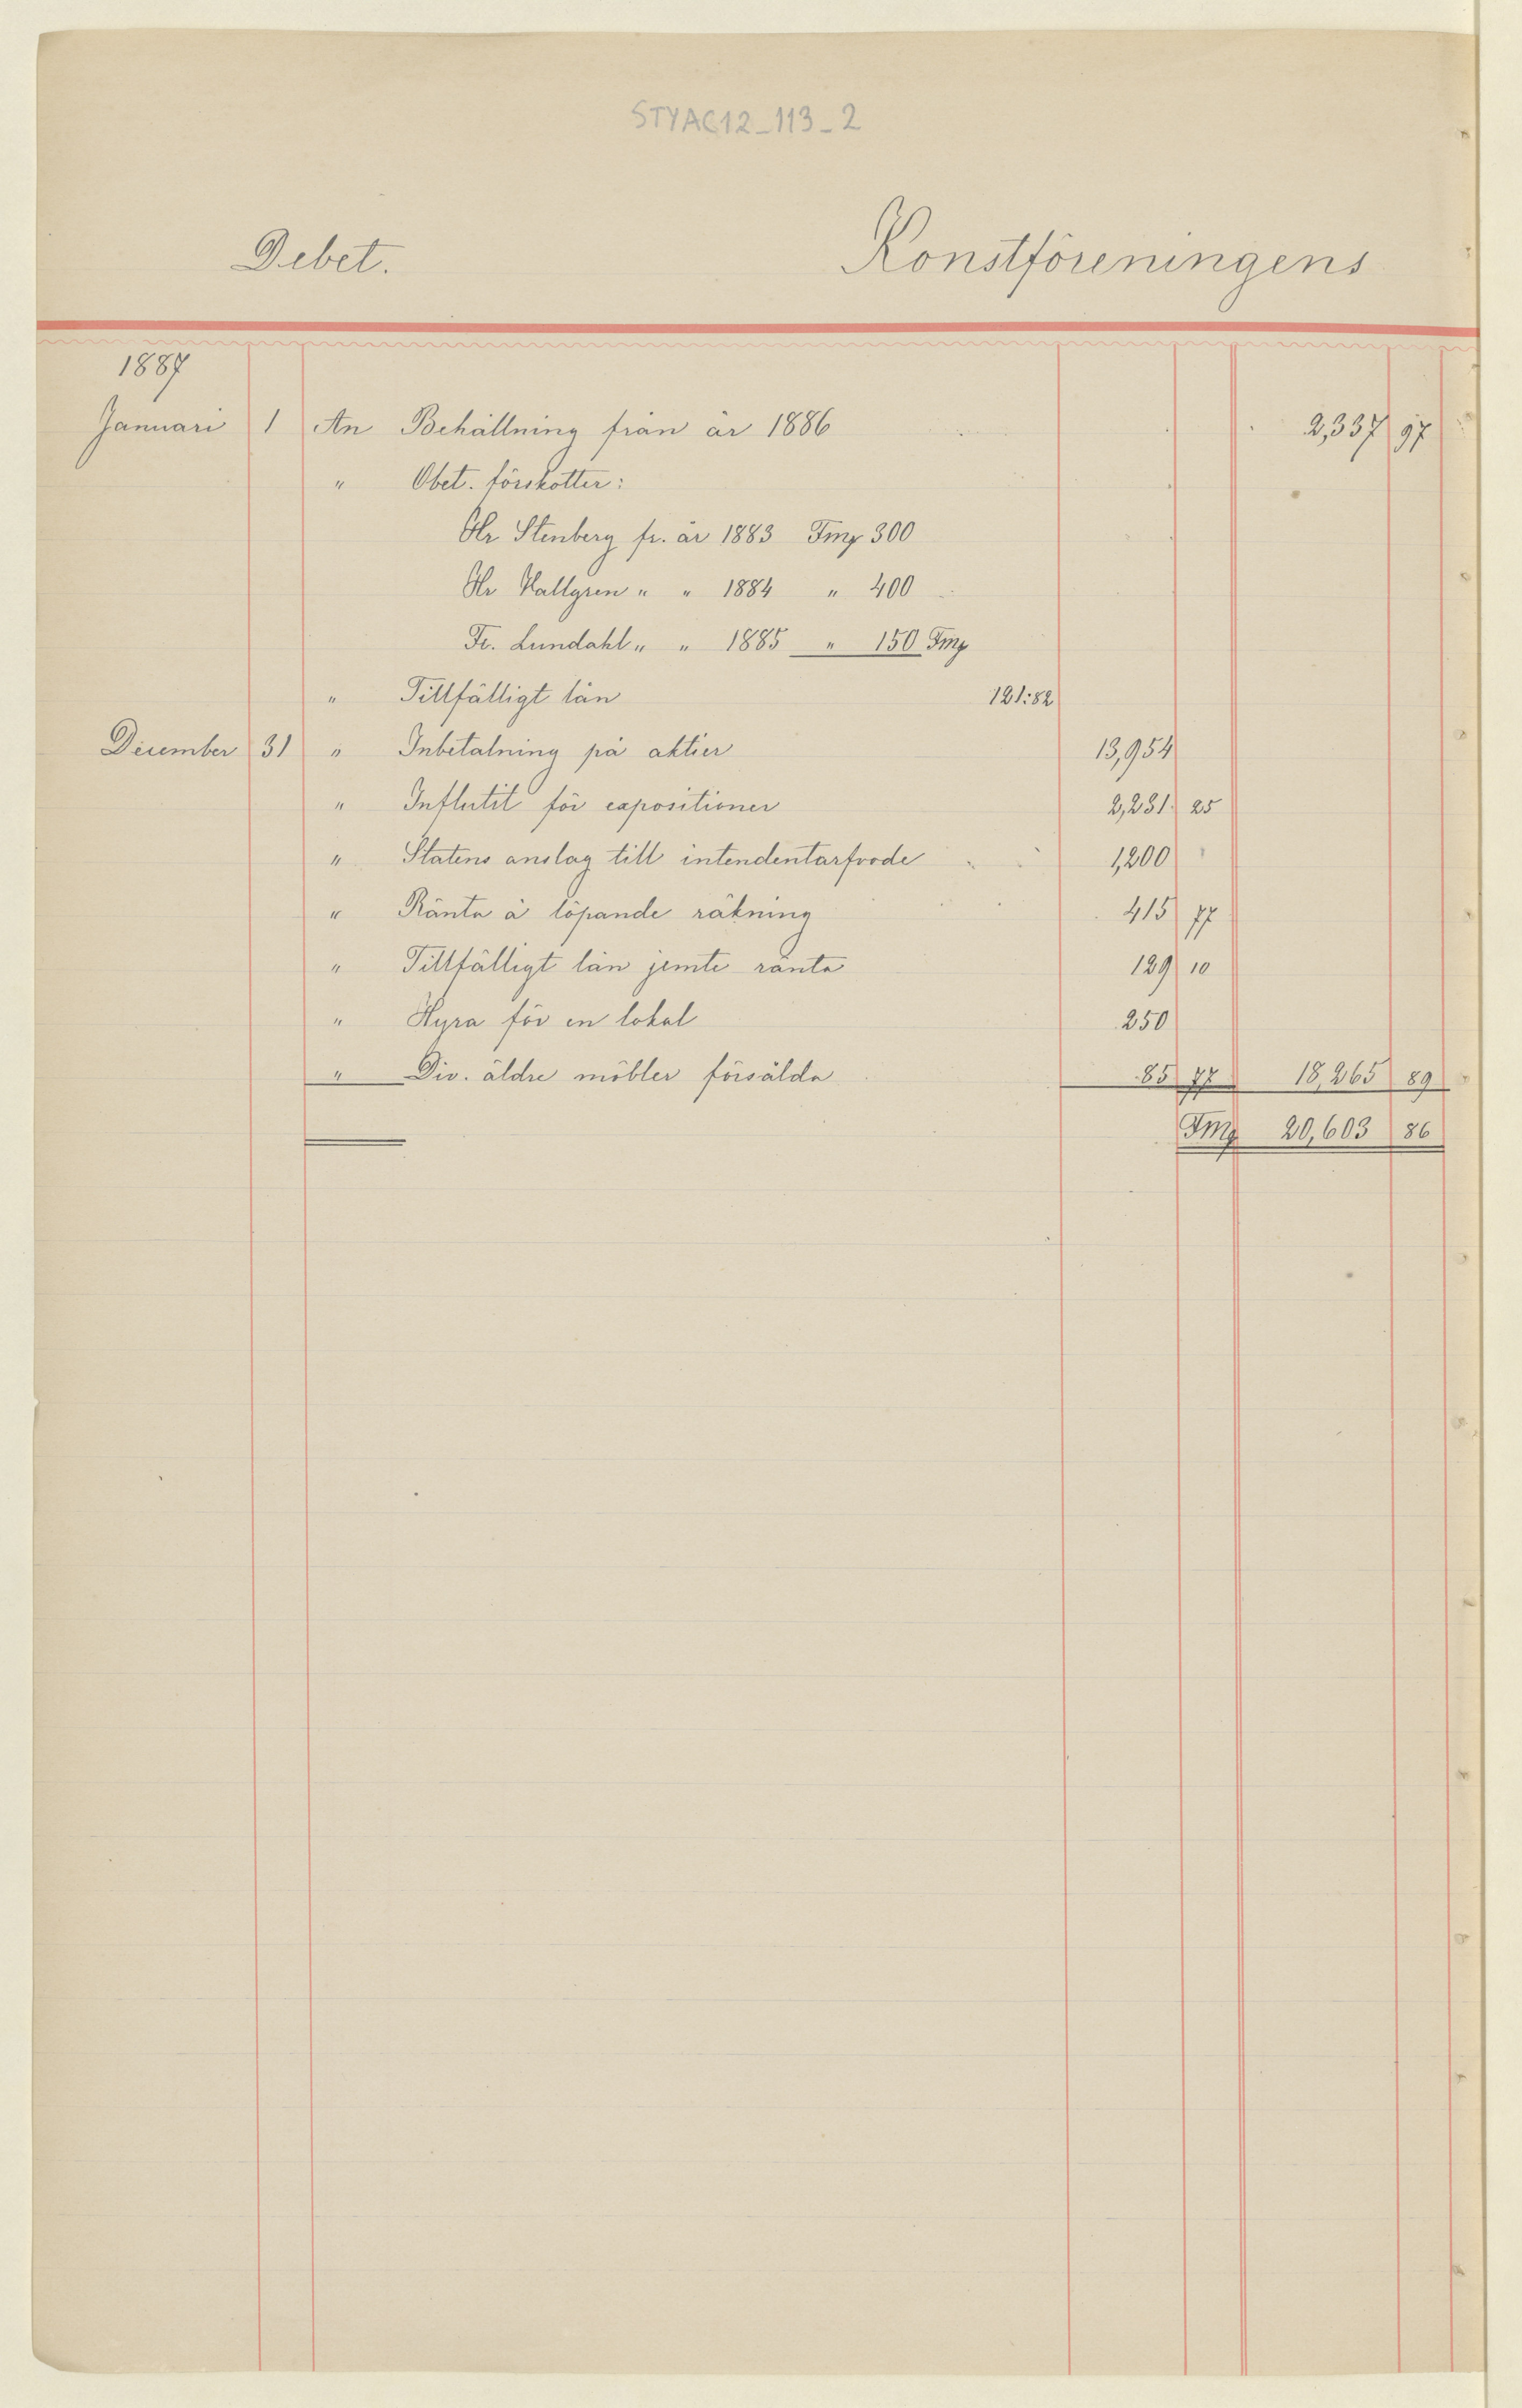 STYAC12_113_2
Debet. Konstföreningens
1887
Januari 1 An Behållning från år 1886 2,337 97
" Obet. förskotter:
Hr Stenberg fr. år 1883 Fmg 300
Hr Hallgren " " 1884 " 400
Fr. Lundahl " " 1885 " 150 Fmg
" Tillfälligt lån 121:82
December 31 " Inbetalning på aktier 13,954
" Influtit för expositioner 2,231 25
" Statens anslag till intendentarfvode 1,200
" Ränta å löpande räkning 415 77
" Tillfälligt lån jemte ränta 129 10
" Hyra för en lokal 250
" Div. äldre möbler försålda 85 77 18,265 89
Fmg 20,603 86